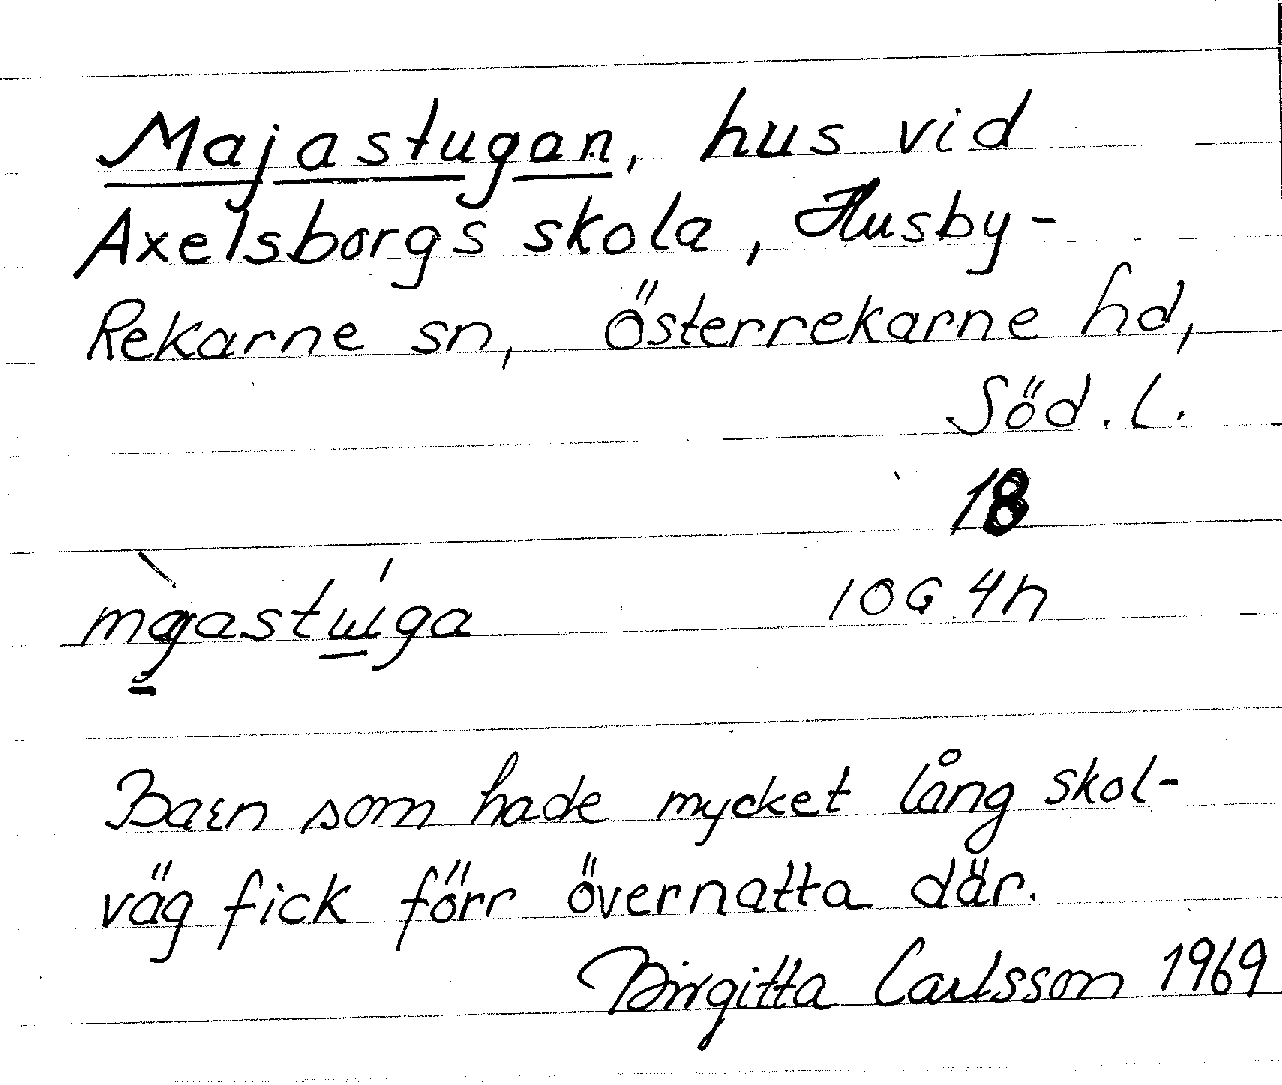 Majastugan, hus vid
Axelsborgs skola, Husby-
Rekarne sn, Österrekarne hd,
Söd. l.
18
10G 4h
Barn som hade mycket lång skol-
väg fick förr övernatta där.
Birgitta Carlsson 1969